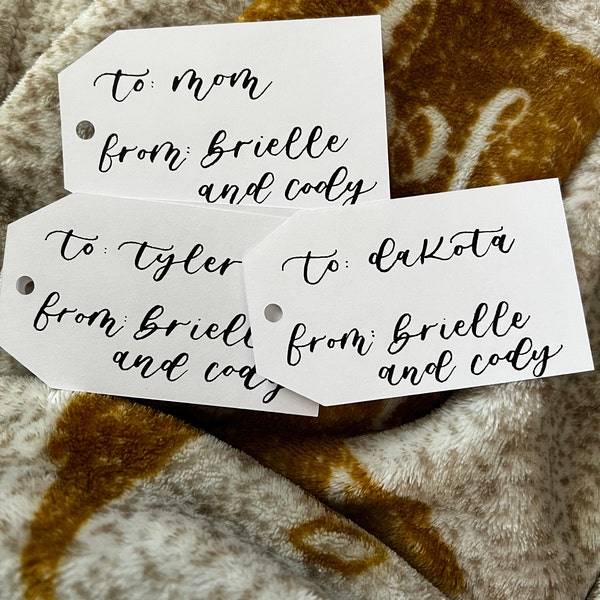 to: mom
from: brielle
and cody
to: tyler
from: brielle
and cody
to: daKota
from: brielle
and cody